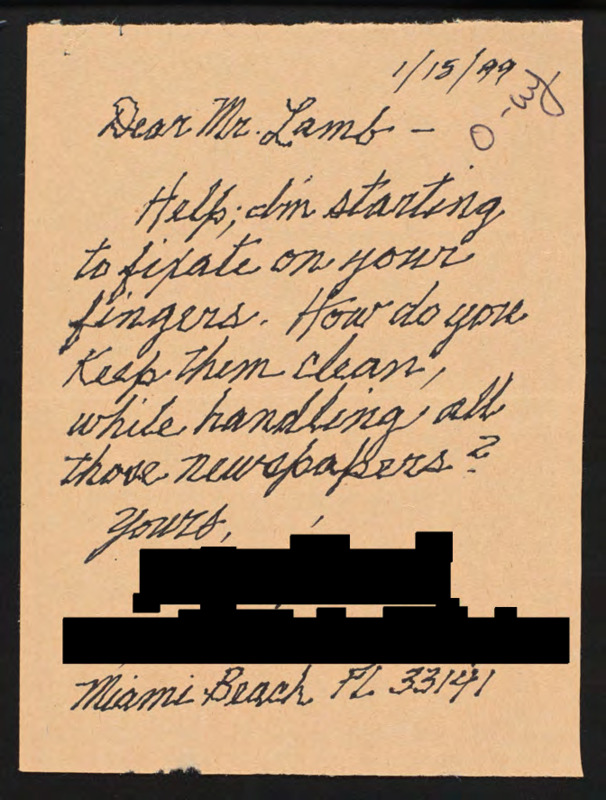 1/15/99
Dear Mr. Lamb -
Help; I'm starting
to fixate on your
fingers. How do you
Keep them clean,
while handling all
those newspapers?
Yours,
Miami Beach FL 33141